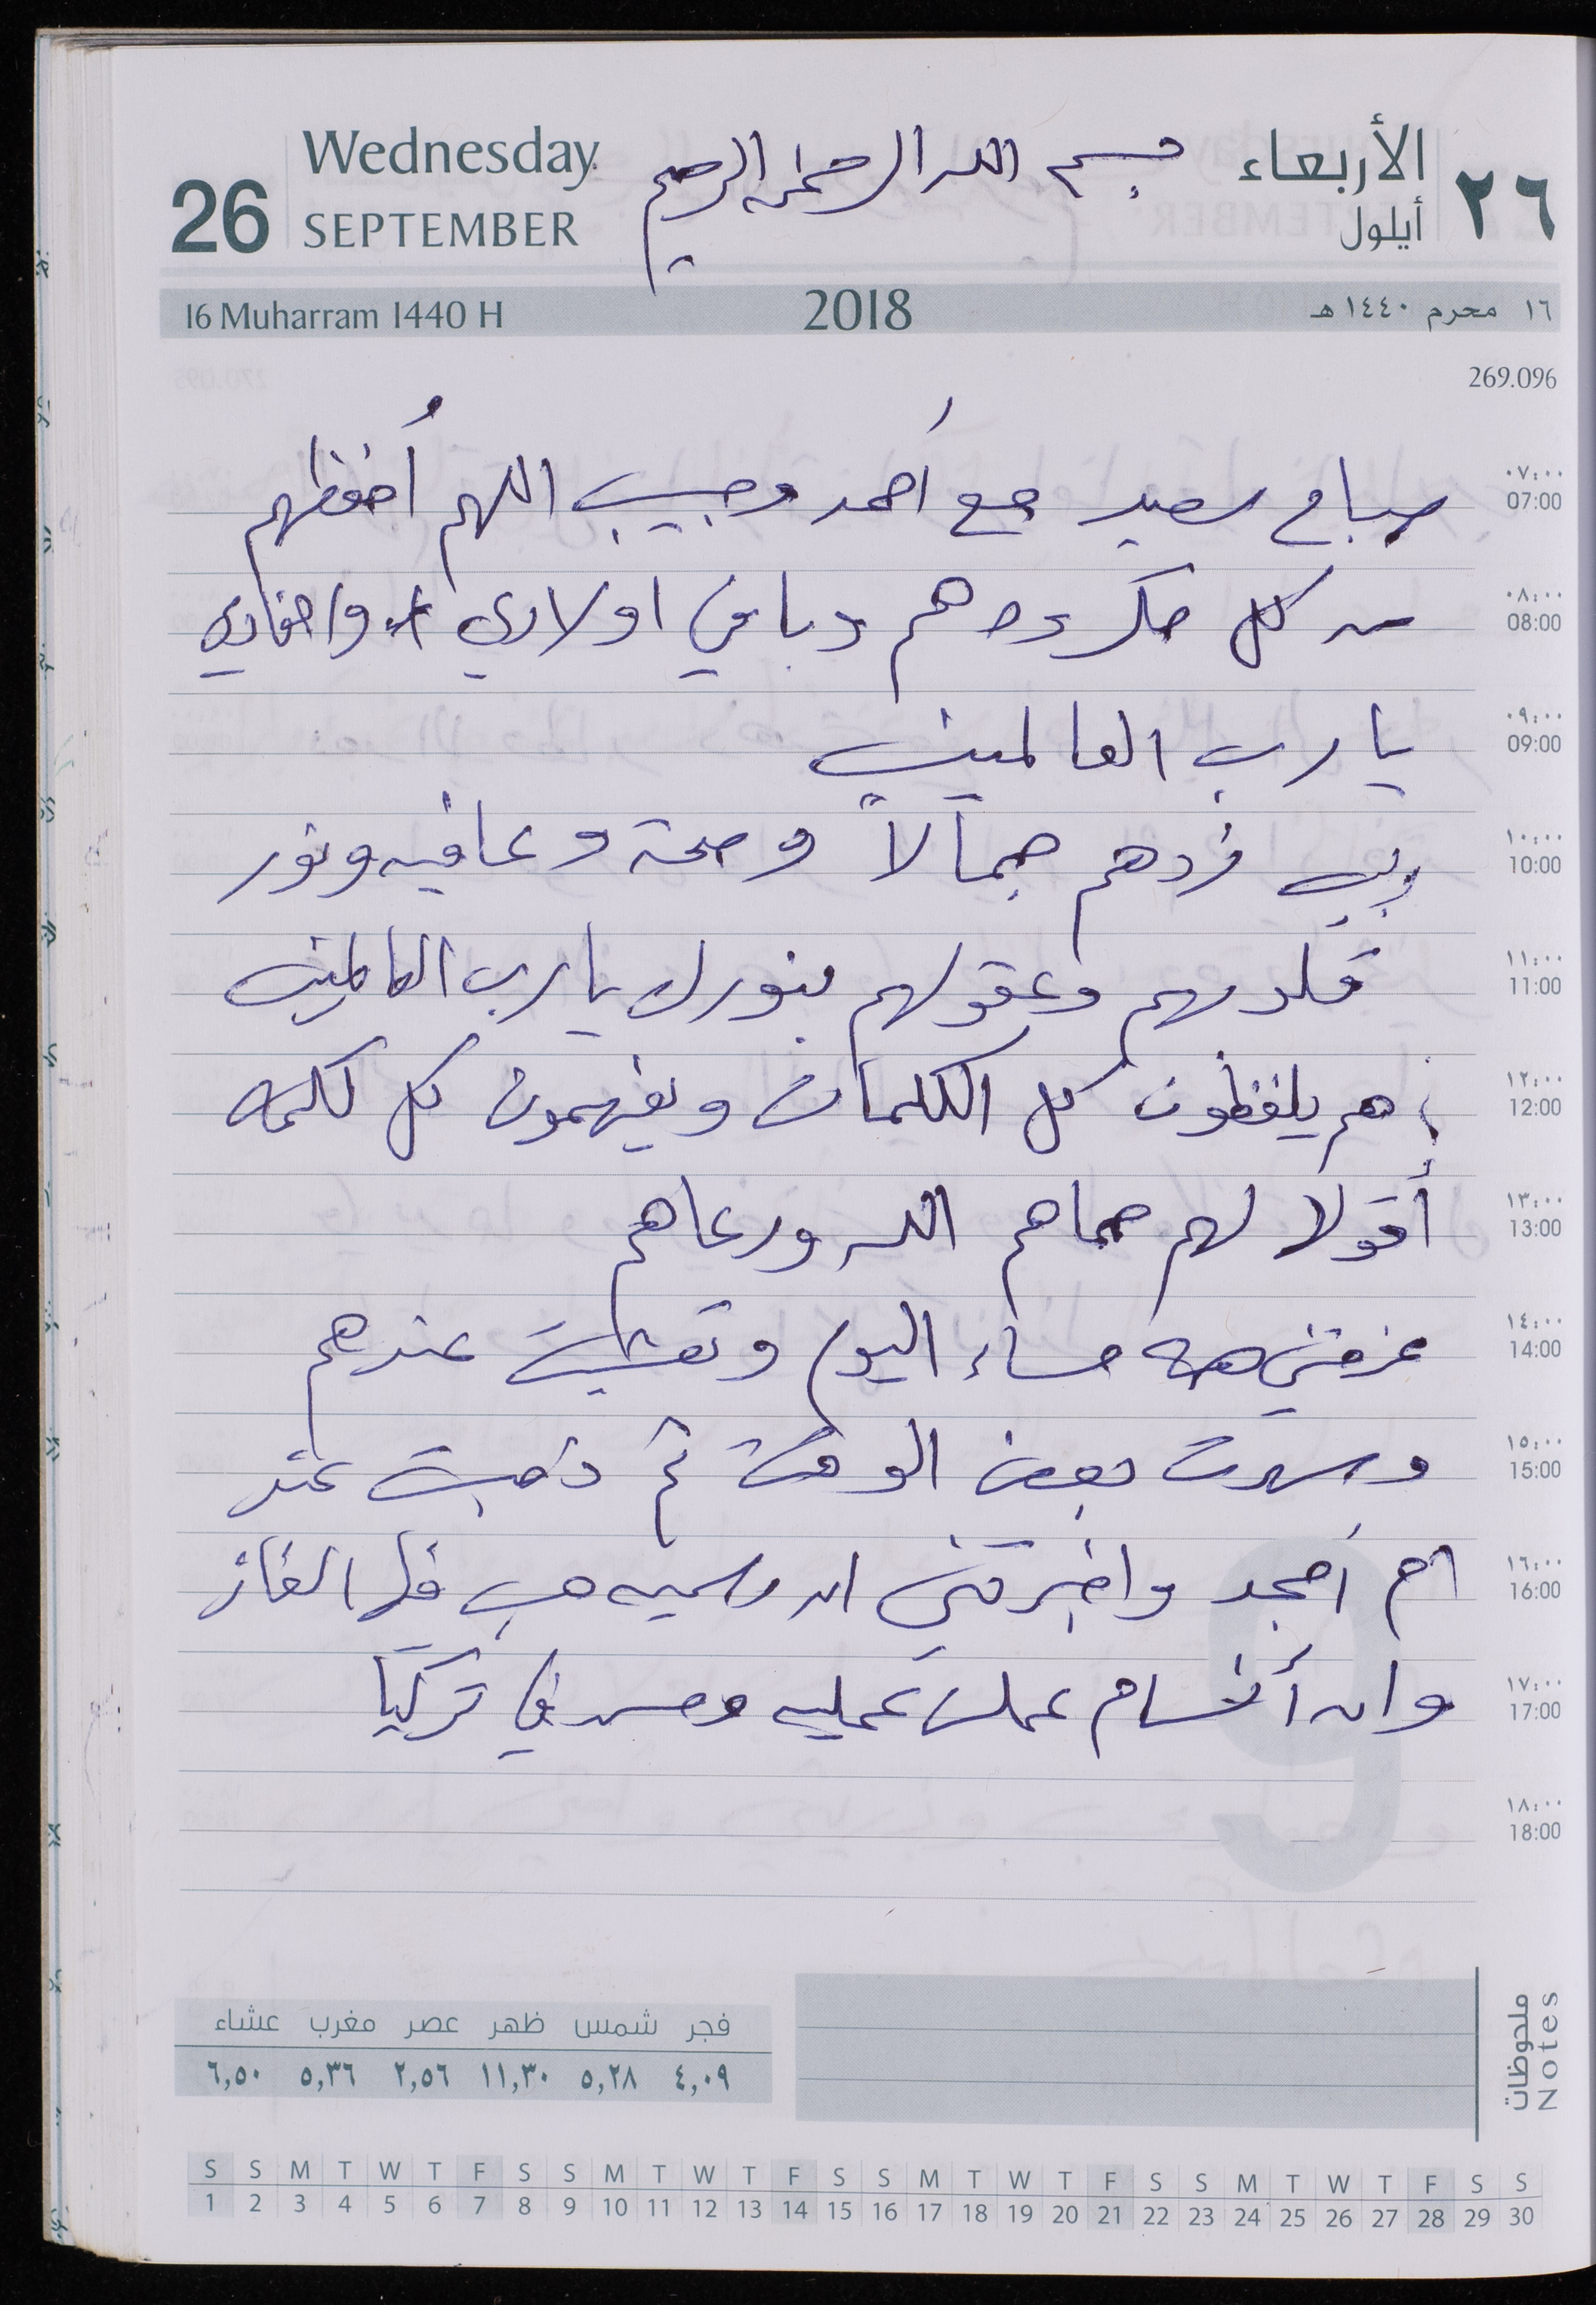 26 Wednesday SEPTEMBER بسم الله الرحمن الرحيم الأربعاء أيلول ٢٦
16 Muharram 1440 H 2018 ١٦ محرم ١٤٤٠ هـ
269.096
صباح سعيد مع أحمد وحبيب اللهم أحفظهم ٠٧:٠٠ 07:00
من كل مكروه هم وباقي اولادي واحفادي ٠٨:٠٠ 08:00
يا رب العالمين ٠٩:٠٠ 09:00
ربي زدهم جمالاً وصحة وعافيه ونور ١٠:٠٠ 10:00
قلوبهم وعقولهم بنورك يا رب العالمين ١١:٠٠ 11:00
هم يلفظون كل الكلمات ويفهمون كل كلمه ١٢:٠٠ 12:00
أقولا لهم حماهم الله ورعاهم ١٣:٠٠ 13:00
مساء اليوم وتعشيت عندهم ١٤:٠٠ 14:00
وسهرت بعض الوقت ثم ذهبت عند ١٥:٠٠ 15:00
ام أمجد واخبرتني ان الغاز ١٦:٠٠ 16:00
وان عملت عمليه في تركيا ١٧:٠٠ 17:00
١٨:٠٠ 18:00
ملحوظات Notes
فجر شمس ظهر عصر مغرب عشاء
٤,٠٩ ٥,٢٨ ١١,٣٠ ٢,٥٦ ٥,٣٦ ٦,٥٠
S S M T W T F S S M T W T F S S M T W T F S S M T W T F S S
1 2 3 4 5 6 7 8 9 10 11 12 13 14 15 16 17 18 19 20 21 22 23 24 25 26 27 28 29 30
9